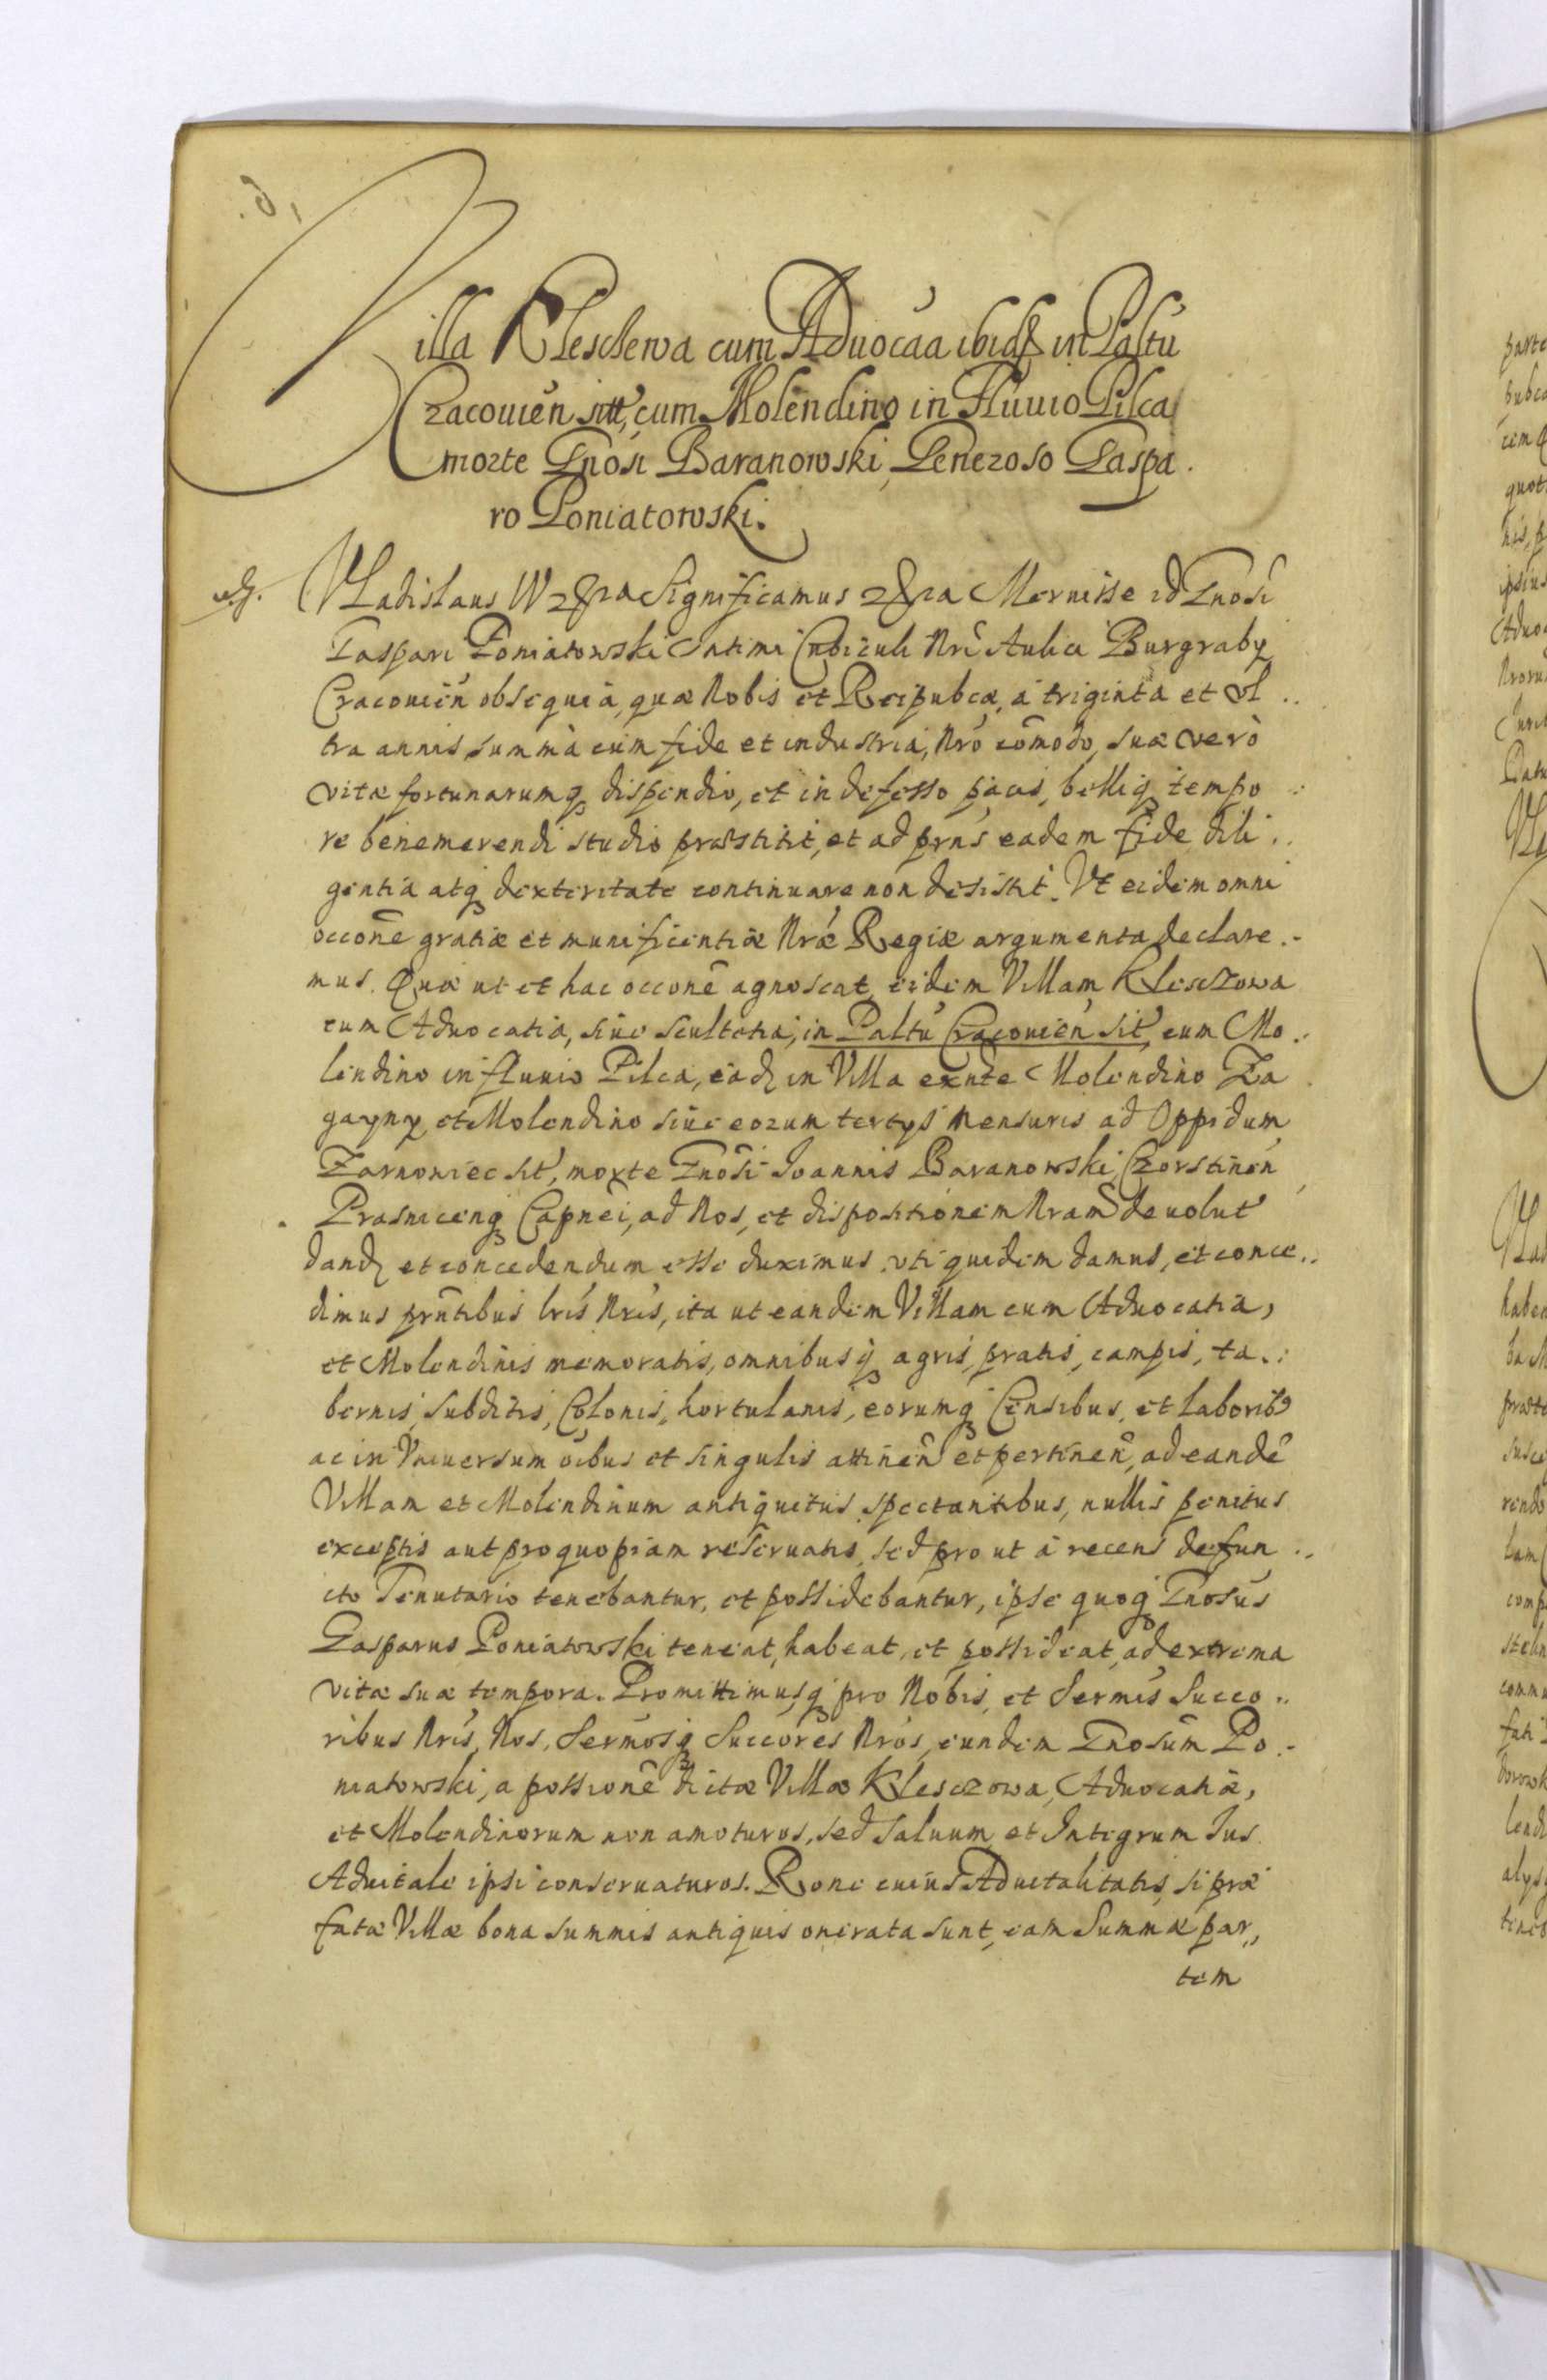 Villa Klesczewa cum Aduocãa ibid. in Paltu
Cracouien̄ sitt, cum Molendino in Fluuio Pilca
morte Gnosi Baranowski, Generoso Gaspa
ro Poniatowski.
Vladislaus IV &ra Significamus &ra Meruisse id Gnosi
Gaspari Poniatowski Intimi Cubiculi Nri Aulici Burgraby
Cracouien̄ obsequia, quæ Nobis et Reipubcæ, à triginta et vl..
tra annis summà cum fide et industria, Nro cõmodo, suæ verò
vitæ fortunarumq dispendio, et indefesso pacis, belliq tempo:
re benemerendi studio præstitit, et ad prns eadem fide dili..
gentia atq dexteritate continuare non desistit. Vt eidem omni
occone gratiæ et munificentiæ Nræ Regiæ argumenta declare.-
mus. Quæ ut et hac occone agnoscat, eidem Villam Klesczowa
cum Aduocatia, siue scultetia, in Paltu Cracouien̄ sit, cum Mo.:
lendino in fluuio Pilca, ead in Villa exnte Molendino Za
gayny et Molendino siue eorum tertys mensuris ad Oppidum
Zarnowiec sit, morte Gnosi Joannis Baranowski, Czorstinen̄
Prasnicenq Capnei, ad Nos, et dispositionem Nram deuolut
dand et concedendum esse duximus uti quidem damus, et conce..
dimus prntibus lris Nris, ita ut eandem Villam cum Aduocatia,
et Molendinis memoratis, omnibusq agris, pratis, campis, ta.:
bernis, subditis, Colonis, hortulanis, eorumq Censibus, et laborib9
ac in Vniuersum oibus et singulis attinen̄ et pertinen̄, ad eandē
Villam et Molendinum antiquitus spectantibus, nullis penitus
exceptis aut pro quopiam reseruatis, sed pro ut à recens defun..
cto Tenutario tenebantur, et possidebantur, ipse quoq Gnosus
Gasparus Poniatowski teneat, habeat, et possideat, ad extrema
vitæ suæ tempora. Promittimusq pro Nobis, et Sermis Succo..
ribus Nris, Nos, Sermosq Succores Nros, eundem Gnosum Po.-
niatowski, a possione dictæ Villæ Klesczowa, Aduocatiæ,
et Molendinorum non amoturos, sed saluum et Integrum Jus
Aduitale ipsi conseruaturos. Rone cuius Aduitalitatis, si præ
fatæ Villæ bona summis antiquis onerata sunt, eam Summæ par,,
tem